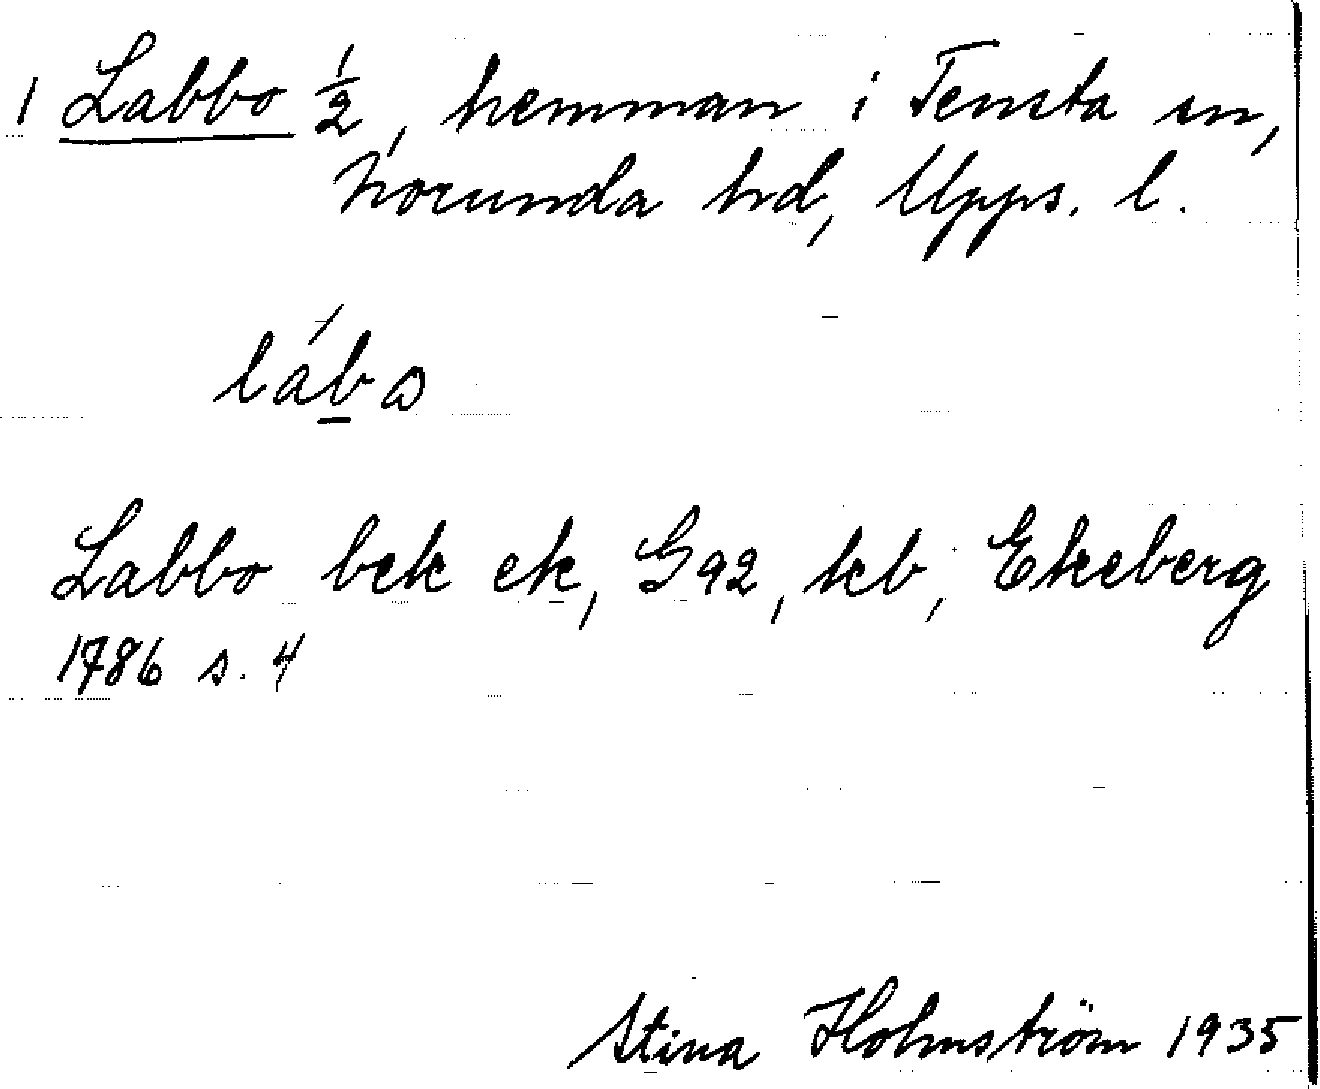 1 Labbo 1/2, hemman i Tensta sn,
Norunda hd, Upps. l.
lábω
Labbo bek ek, G92, kb, Ekeberg
1786 s. 4
Stina Holmström 1935